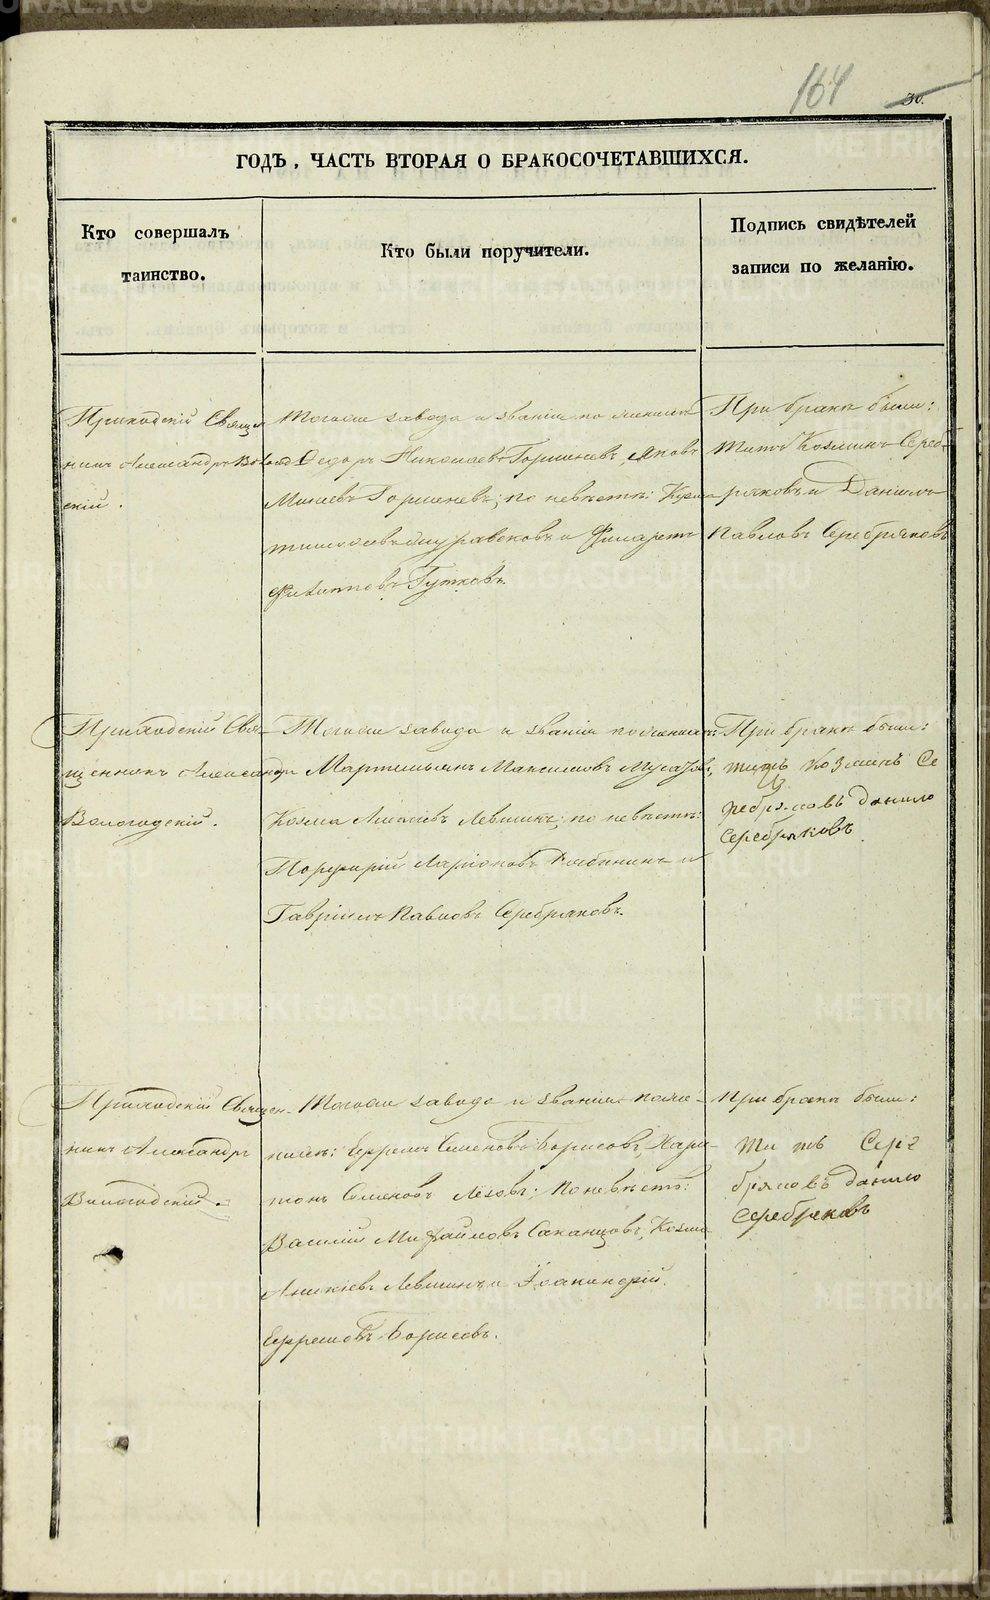 164
30.
ГОДЪ, ЧАСТЬ ВТОРАЯ О БРАКОСОЧЕТАВШИХСЯ.
Кто совершалъ
таинство.
Кто были поручители.
Подпись свидѣтелей
записи по желанію.
Приходскій Священ
никъ Александръ Вологод
скій.
Тогоже завода и званія по женихѣ
Ѳедоръ Николаевъ Горшеневъ, Яковъ
Горшеневъ; по невѣстѣ:
и Филаретъ
Филипповъ
При бракѣ были:
Титъ Козминъ Сереб-
ряковъ и Даніилъ
Павловъ Серебряковъ
Приходскій Свя-
щенникъ Александръ
Вологодскій.
Тогоже завода и званія по женихѣ:
Мартемьянъ Максимовъ
Козма Левшинъ; по невѣстѣ:
Порфирій Ларіоновъ и
Гавріилъ Павловъ Серебряковъ.
При бракѣ были:
титъ Козминъ Се
ребряковъ данило
Серебряковъ
Приходскій Священ-
никъ Александръ
Вологодскій.
Тогоже завода и званія по же-
нихѣ: Ефремъ Семеновъ Борисовъ, Хари-
тонъ Семеновъ; по невѣстѣ:
Василій Михайловъ Козма
Аникіевъ Левшинъ и
Ефремовъ Борисовъ.
При бракѣ были:
Титъ Сере
бряковъ данило
Серебряковъ
METRIKI.GASO-URAL.RU